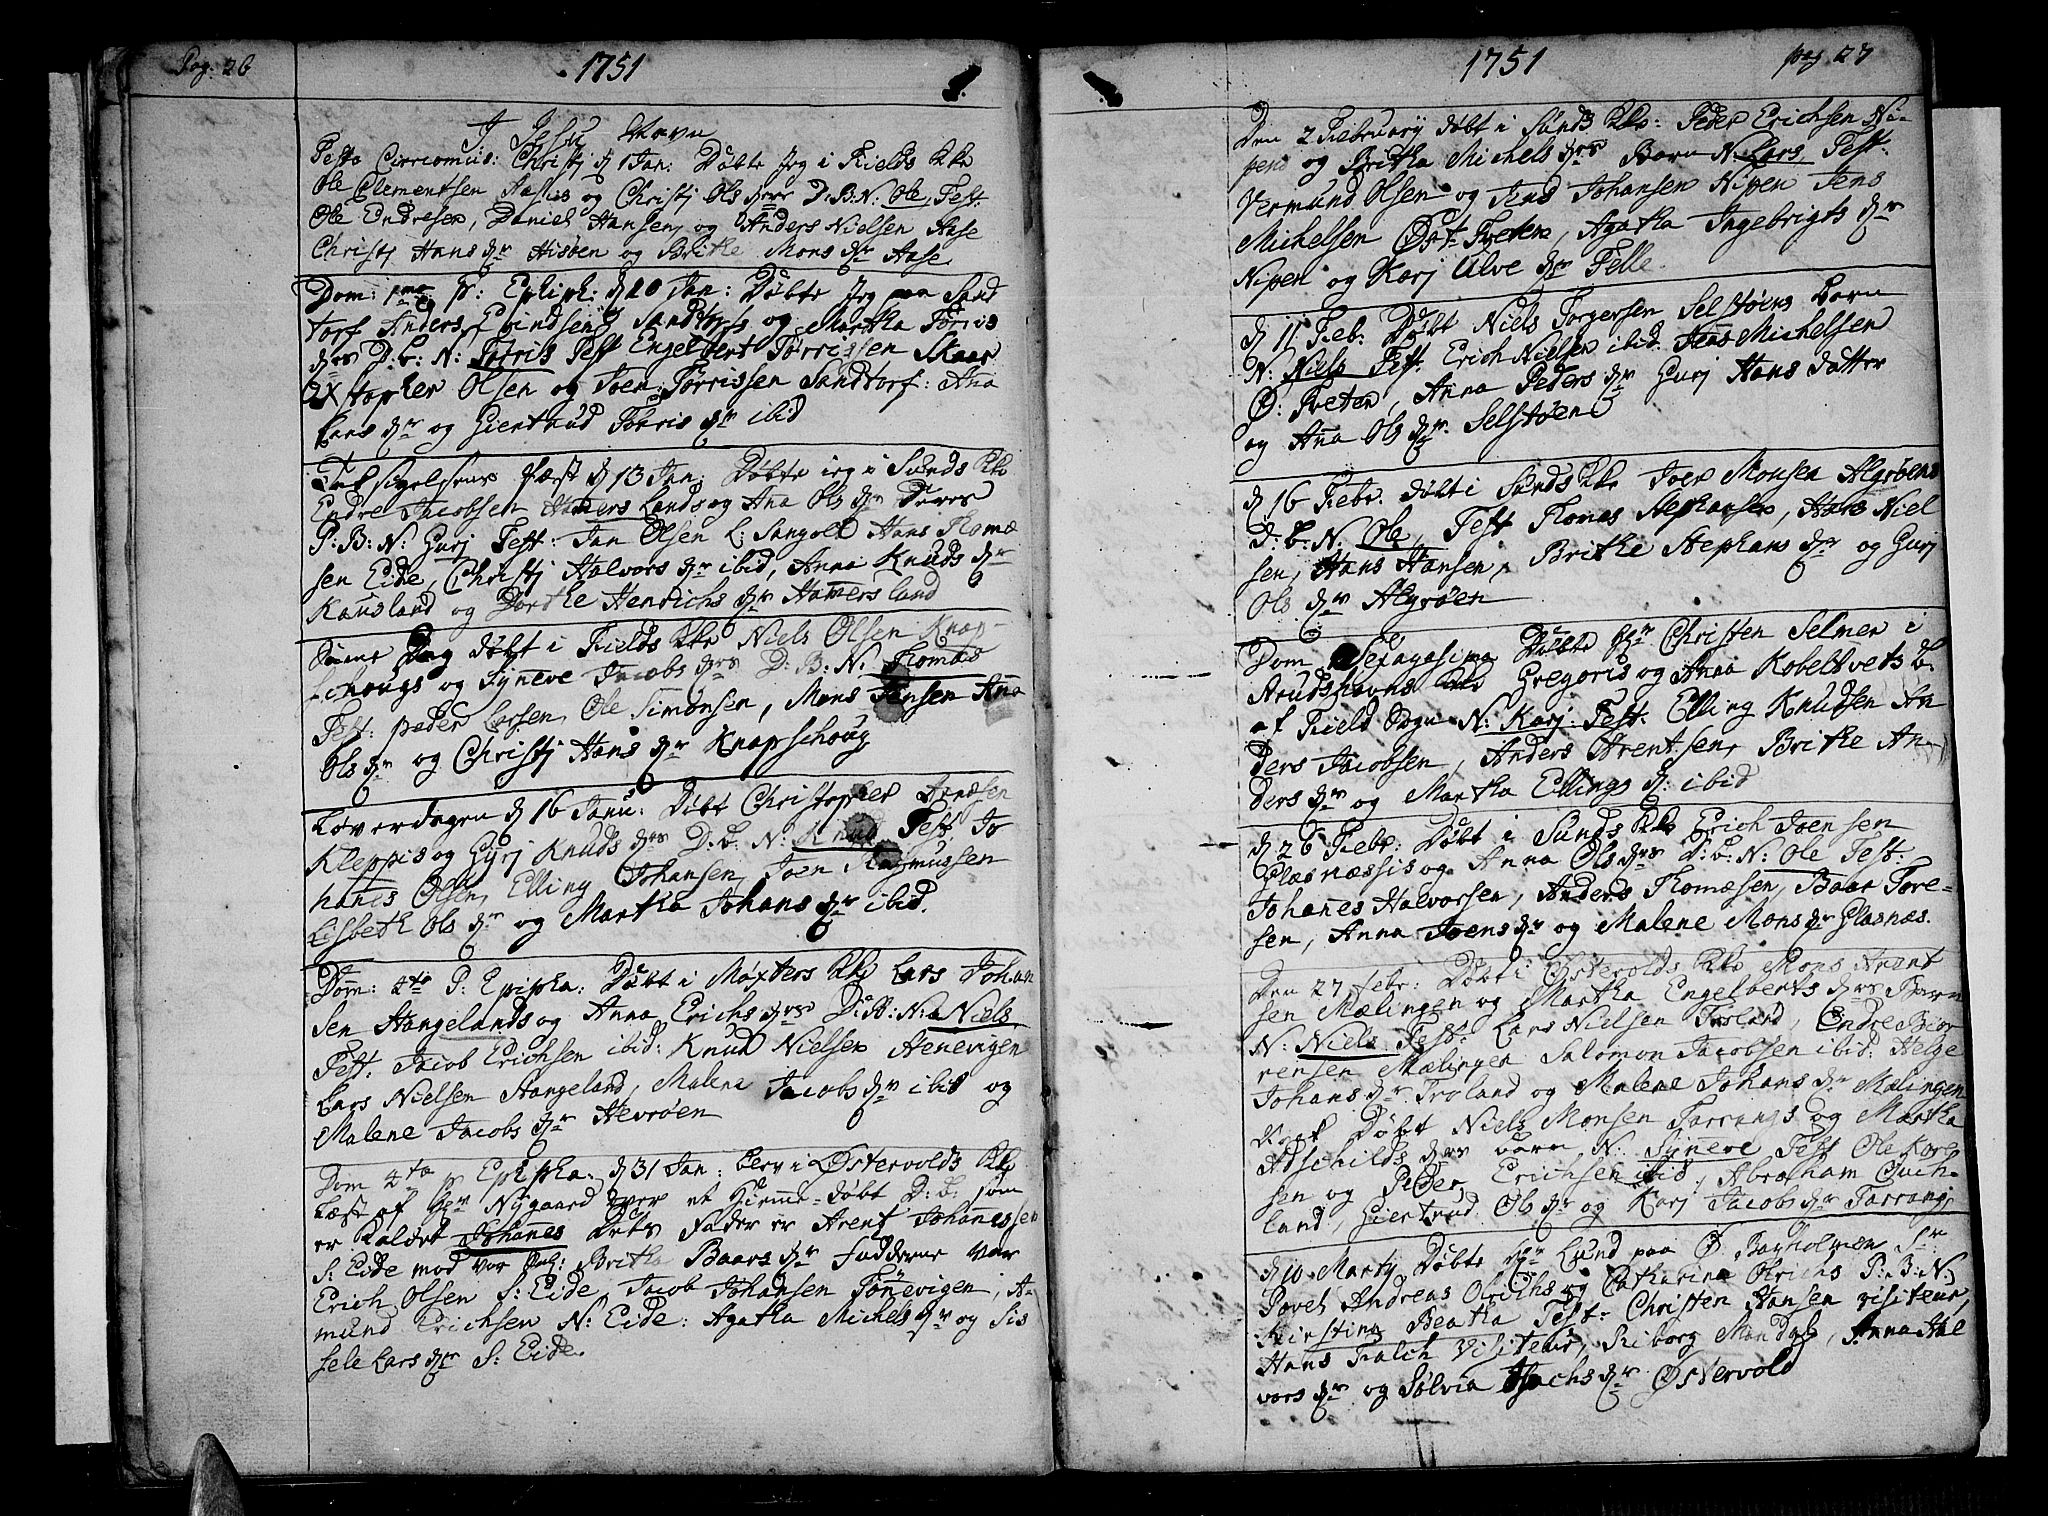 Pag: 26
1751
J Jesu Navn
Festo Circumcis: Christj d 1 Jan: Døbte Jeg i Fields Kke
Ole Clementsen og Christj Ols dttrs D:B:N: Ole, Test:
Ole Endresen, Daniel Hansen, og Anders Nielsen Aase
Christj Hans dr Hisøen og Brithe Mons dr Aase
Dom: 1ma P: Epiph: d 10 Jan: Døbte Jeg paa Sand
torf Anders Evindsen Sandtorfs og Martha Tørris
drs D.b: N: Tørris Test Engelbert Tørrissen Skaar
Xstopher Olsen og Joen Tørrissen Sandtorf: Aña
Lars dr og Giertrud Tørris dr ibid
fæst d 13 Jan: Døbte jeg i Sunds Kke
Endre Jacobsen Hamerslands og Aña Ols dr Deres
P:B:N: Gurj Test: Jan Olsen L: Sangolt Hans Thomæ
sen Eide, Christj Halvors dr ibid, Anna Knuds dr
Kausland og Dorthe Henrichs dr Hamersland
Same Dag døbt i Fields Kke Niels Olsen Knap-
schougs og Syneve Jacobs drs D:B:N: Thomas
Test: peder Larsen, Ole Simonsen, Mons Jansen Aña
Ols dr og Christj Hans dr Knapschoug
Løverdagen d 16 Janu: Døbt Christopher Arnesen
Kleppis og Gyrj Knuds drs D.b: N: Knud Test Jo
hañes Olsen, Elling Johansen, Joen Rasmussen
Lisbeth Ols dr og Martha Johans dr ibid.
Dom: 2da P: Epipha: Døbt i Møxters Kke Lars Johan
sen Hangelands og Anna Erichs drs D:B:N: Niels
Test: Jacob Erichsen ibid: Knud Nielsen Aenevigen
Lars Nielsen Hangeland, Malene Jacobs dr ibid og
Malene Jacobs dr Hevrøen
Dom 4ta p Epipha: d 31 Jan: blev i Østervolds Kke
Læst af Hr Nygaard over et hieme-døbt D:b: som
er kaldet Johannes Dets Fader er Arent Johannessen
S: Eide mod vor Brithe Baars dr fadderne var
Erich Olsen S: Eide Jacob Johansen Tønevigen, A-
mund Erichsen N: Eide: Agatha Michels dr og Sis
sele Lars dr S: Eide.
1751
pag 27
Den 2 Februarij døbt i Sunds Kke: Peder Erichsen Ni-
pens og Britha Michels drs Barn N: Lars, Test:
Vermund Olsen og Jens Johansen Nipen Jens
Michelsen Øst Tveten, Agatha Ingebrigts dr
Nipen og Karj Alve dr Telle
d 11 Feb: Døbt Niels Torgersen Selstøens Barn
N: Niels Test: Erich Nielsen ibid: Jens Michelsen
Ø: Tveten, Anna Peders dr Gurj Hans datter
og Aña Ols dr Selstøen
d 16 Febr: døbt i Sunds Kke Joen Monsen Algrøens
D:b:N: Ole, Test Thomas Stephansen, Hans Niel
sen, Hans Hansen, Brithe Stephans dr og Gurj
Ols dr Algrøen
Dom Sexagesima Døbte Hr Christen Selmer i
Gregoris og Anna Kobeltvets b:
af Field Sogn N: Karj: Test: Elling Knudsen An
ders Jacobsen, Anders Arentsen, Brithe An-
ders dr og Martha Ellings d: ibid
d 26 Febr: Døbt i Sunds Kke Erich Joensen
Glasnæssis og Anna Ols drs D:b: N: Ole Test:
Johañes Halvorsen, Anders Thomæsen, Baar Tore-
sen, Anna Joens dr og Malene Mons dr Glasnæs.
Den 27 febr: Døbt i Østervolds Kke Mons Arent
sen Mælingen og Martha Engelberts drs Barn
N: Niels Test: Lars Nielsen Troland, Endre Biør
rensen Mælingen Salomon Jacobsen ibid: Helge
Johans dr Troland og Malene Johans dr Mælingen
Døbt Niels Monsen Tarrangs og Martha
Adschilds drs barn N: Synneve Test Ole Kore
sen og Peder Erichsen ibid, Abraham
land, Giertrud Ols dr og Karj Jacobs dr Tarrang
d 10 Martij Døbte Hr Lund paa Ø Barholmen Sr
Povel Andreas Olrichs og Catharina Olrichs P:B:N:
Kirstina Beatha Test: Christen Hansen visiteur,
Hans Falch Visiteur, Riborg Mandal, Anna Hal
vors dr og Solvia dr Østervold